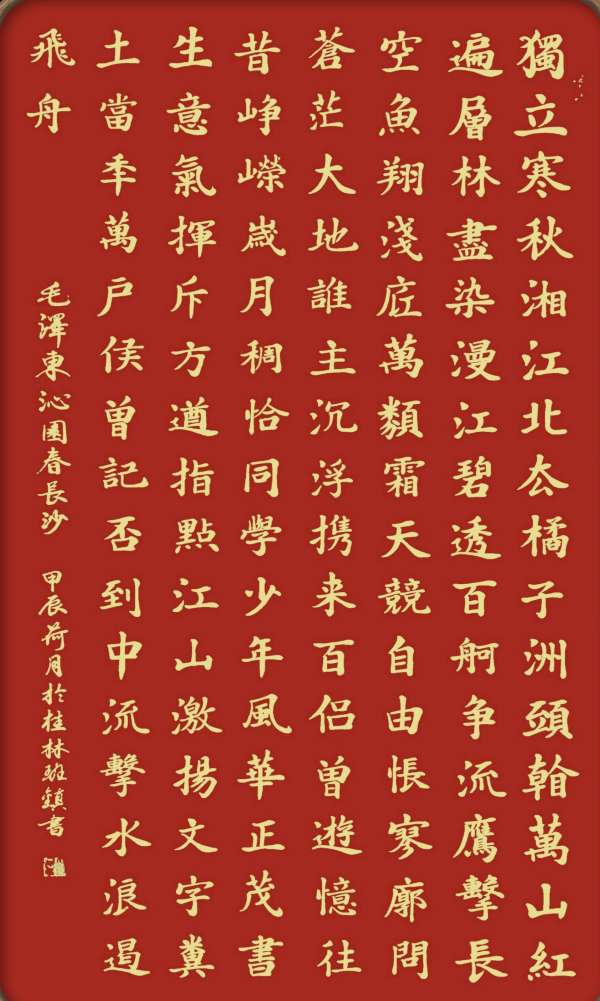 獨立寒秋湘江北厺橘子洲頭看萬山紅
遍層林盡染漫江碧透百舸爭流鷹擊長
空魚翔淺底萬類霜天競自由悵寥廓問
蒼茫大地誰主沉浮携来百侶曾遊憶往
昔崢嶸歲月稠恰同學少年風華正茂書
生意氣揮斥方遒指點江山激揚文字糞
土當年萬戶侯曾記否到中流擊水浪遏
飛舟
毛澤東沁園春長沙 甲辰荷月於桂林班鎮書